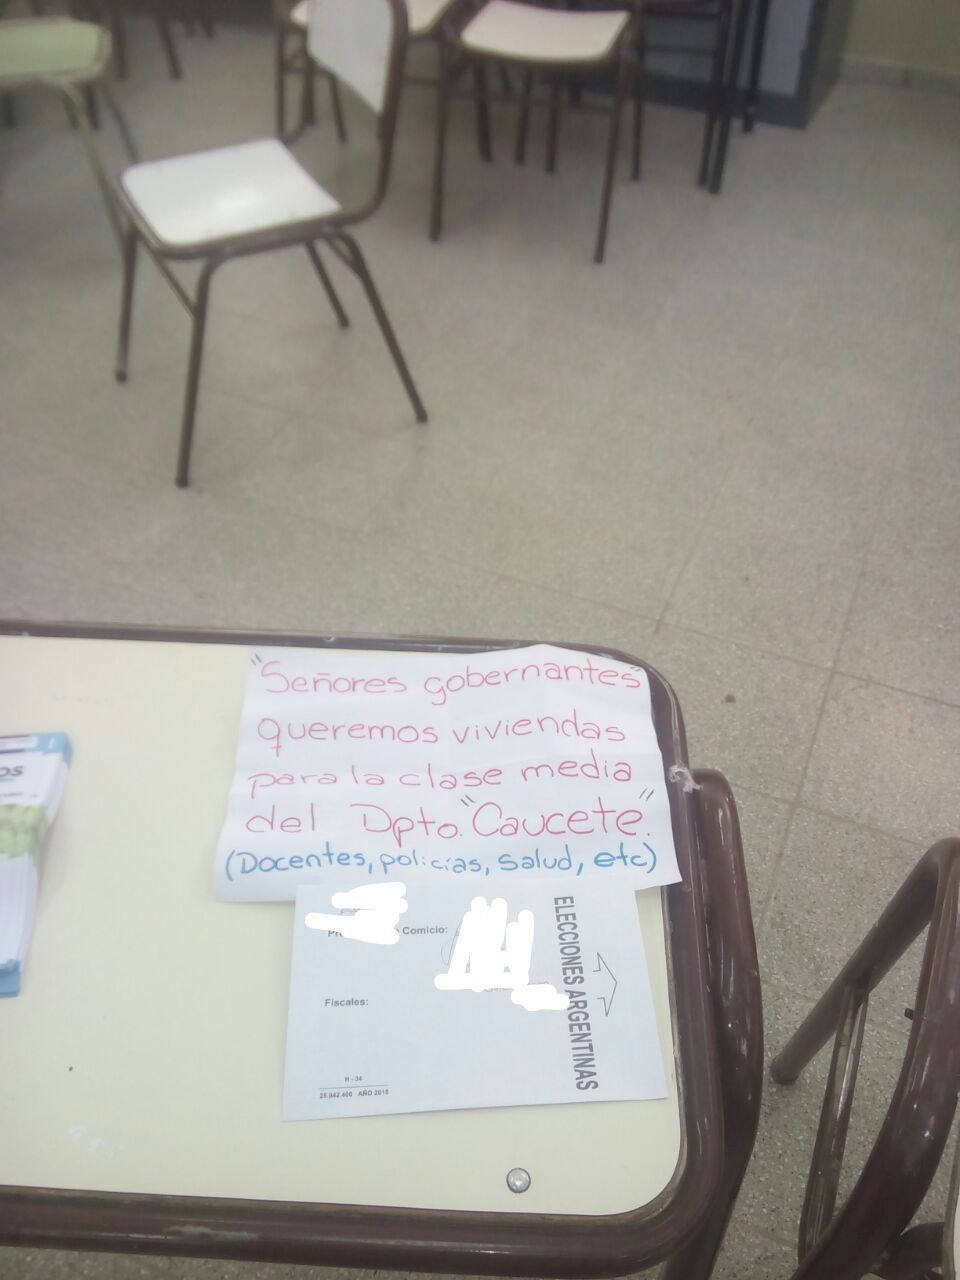 "Señores gobernantes"
queremos viviendas
para la clase media
del Dpto. "Caucete".
(Docentes, policías, salud, etc)
Comicio:
Fiscales:
H - 34
AÑO 2015
ELECCIONES ARGENTINAS
OS